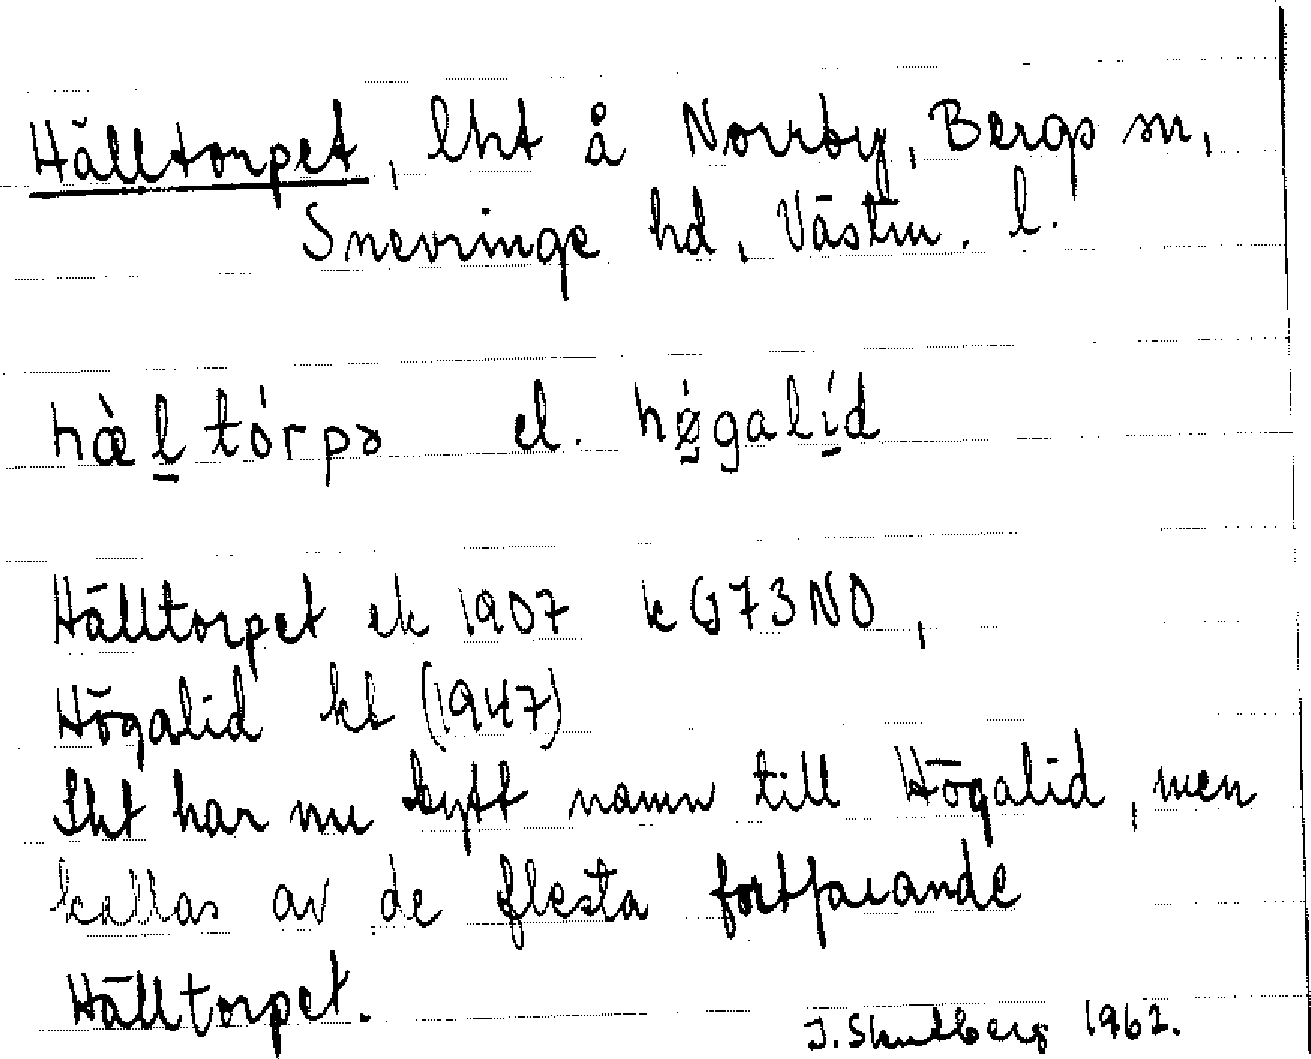 Hälltorpet, lht å Norrby, Bergs sn,
Snevringe hd, Västm. l.
hæ̀l̠tórpə el. hǿ̠galí̠d
Hälltorpet ek 1907 kG73NO,
Högalid kt (1947)
Lht har nu bytt namn till Högalid, men
kallas av de flesta fortfarande
Hälltorpet.
1962.